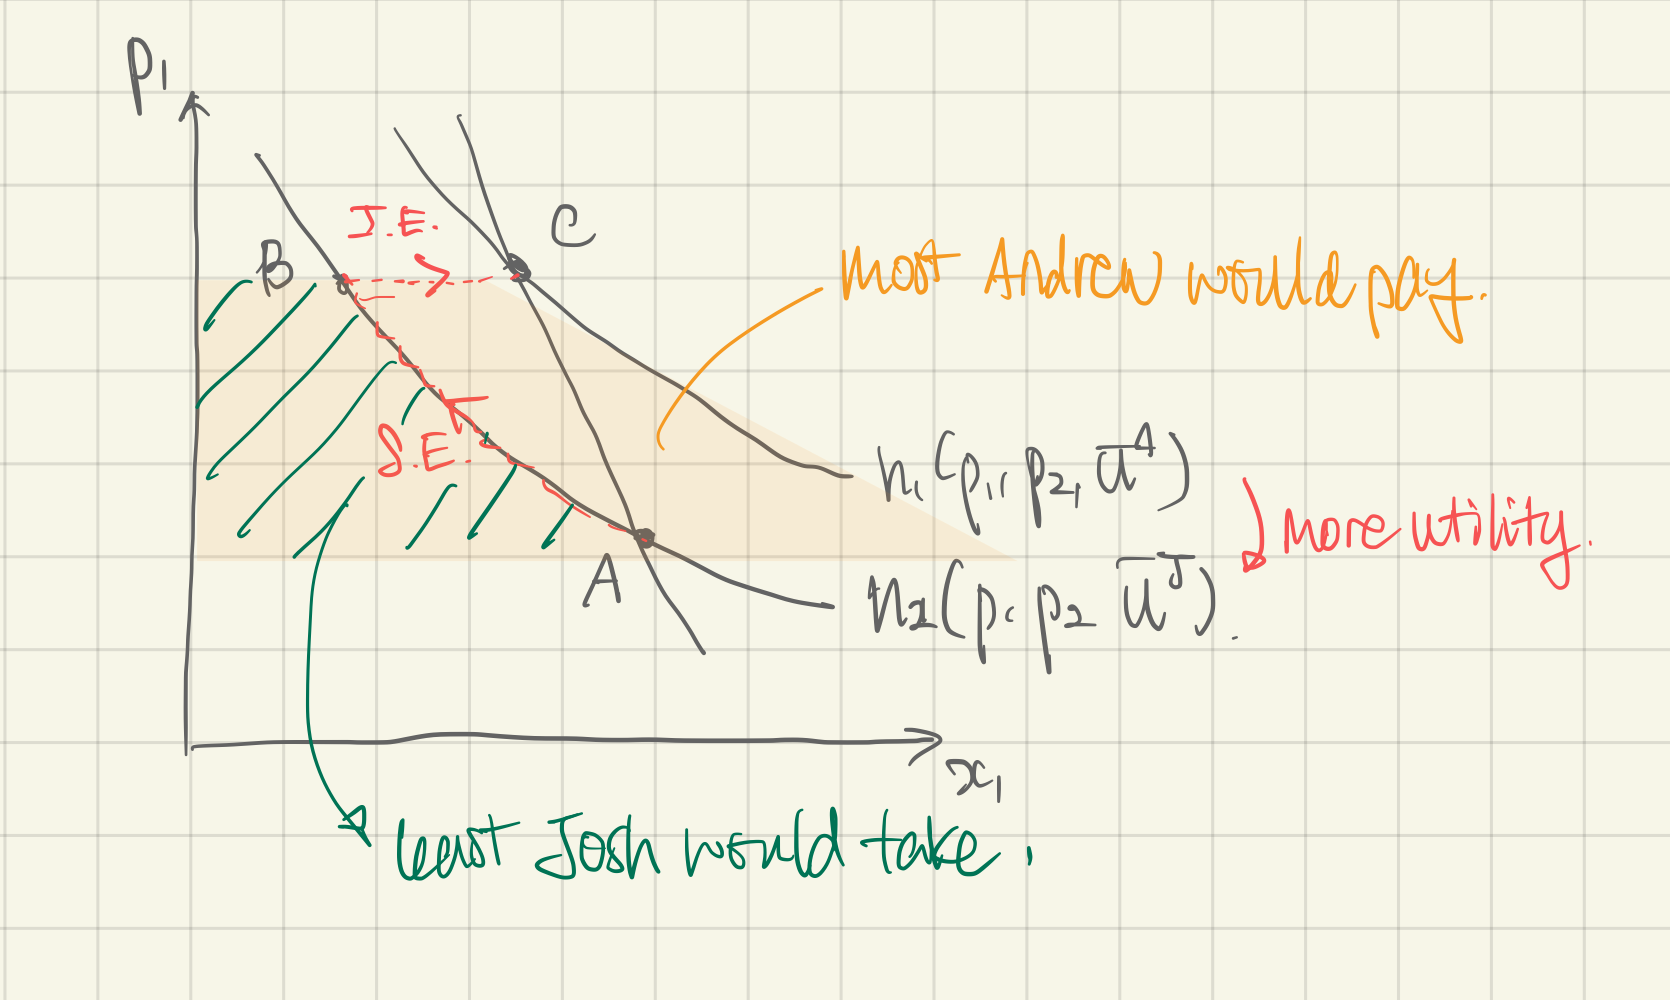 p1
I.E.
C
B
most Andrew would pay.
S.E.
h1(p1, p2, ūᴬ)
more utility.
A
h2(p1 p2 ūᴶ).
x1
least Josh would take.